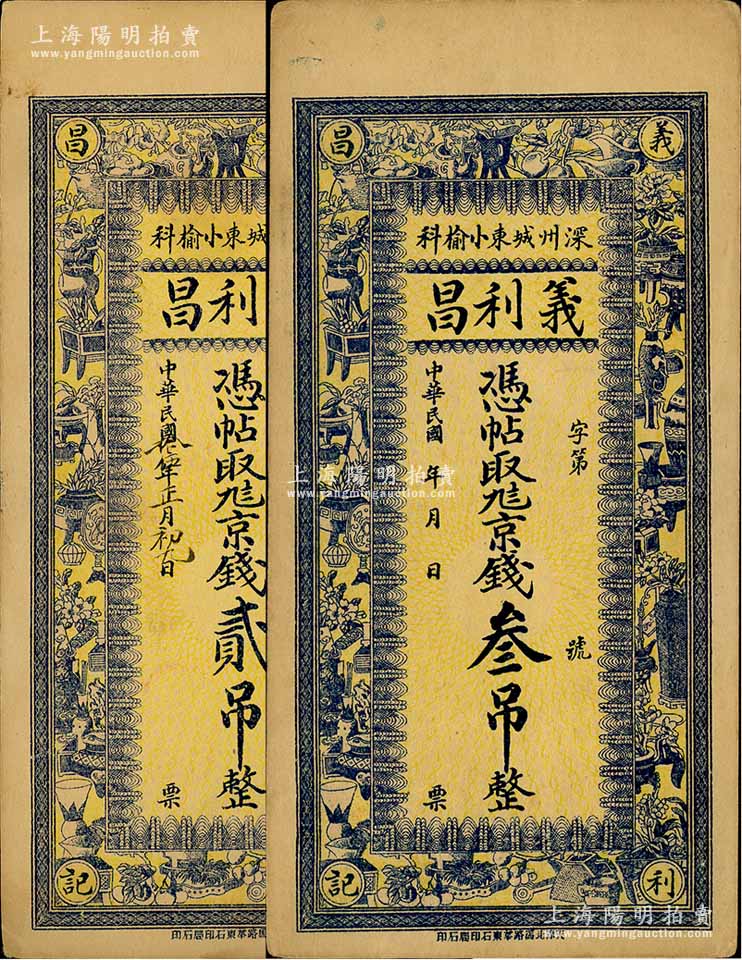 上海陽明拍賣
www.yangmingauction.com
義
昌
利
記
深州城東小榆科
義利昌
字第
號
憑帖取九京錢叁吊整
中華民國 年 月 日
票
石印局石印
昌
記
城東小榆科
利昌
憑帖取九京錢貳吊整
中華民國 年正月初九日
票
石印局石印
上海陽明拍賣
www.yangmingauction.com
上海陽明拍賣
www.yangmingauction.com